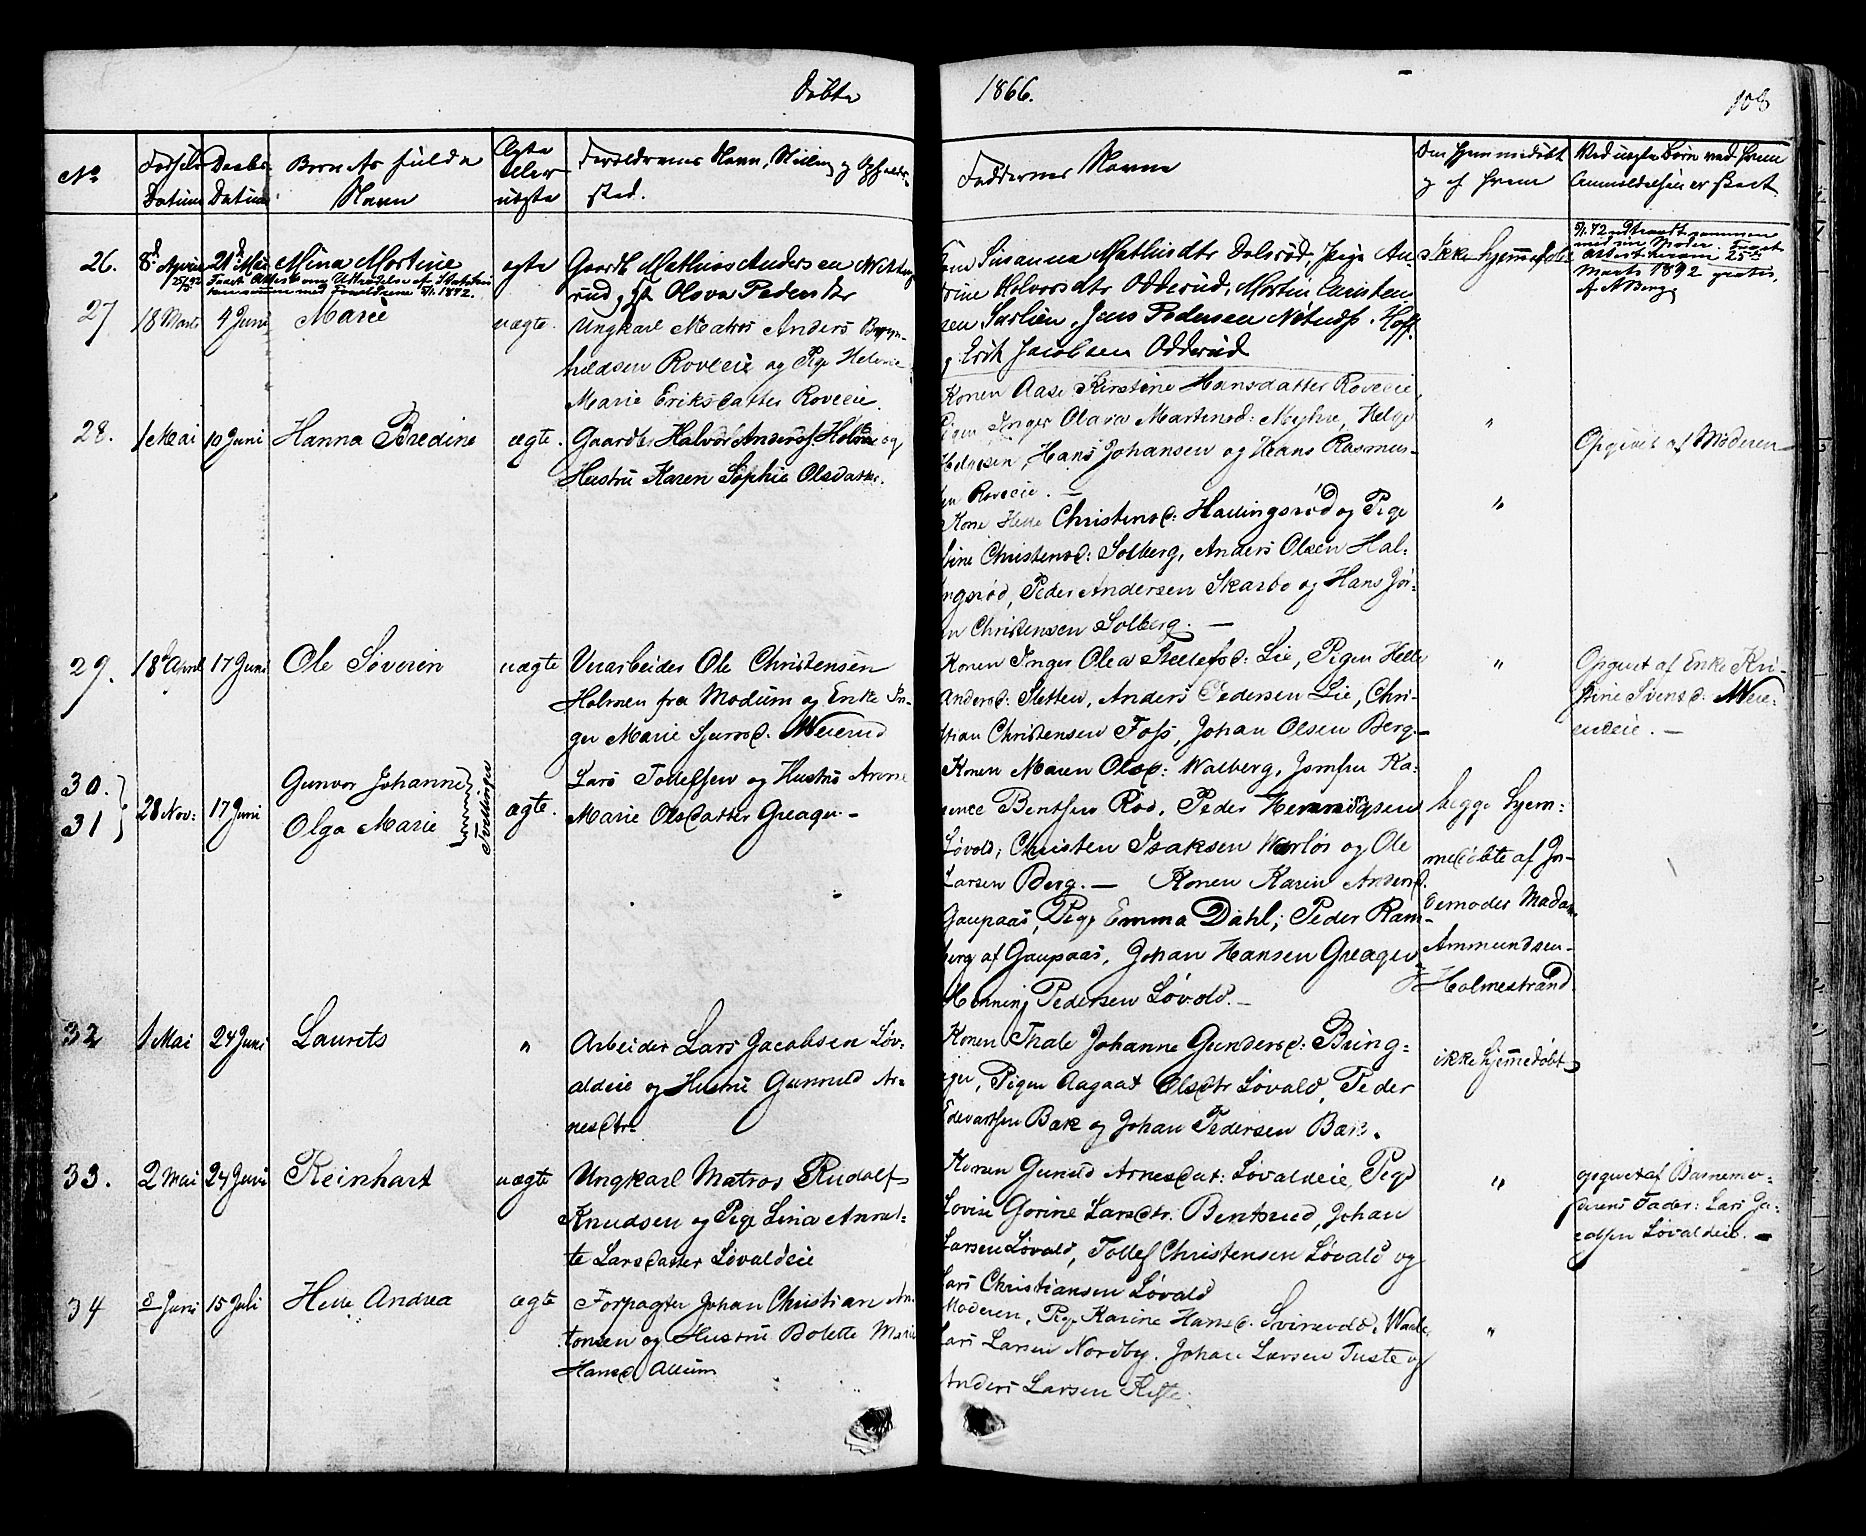 Døbte
1866.
108
No
Fødsels Datum
Daabs Datum
Barnets fulde Navn
Ægte eller uægte
Forældrenes Navn, Stilling og Opholds-
sted.
Faddernes Navne
Om hjemmedøbt
og af hvem
Ved uægte Børn ved hvem
Anmeldelsen er skeet
26.
8d April
21d Mai
Mina Mortine
Taget Attest om Udtrædelse af Statskir
ken sammen med Forældrene 5/1. 1892.
ægte
Gaardb. Mathias Andersen
rud og H Olava Pedersdtr
Susanna Mathisdtr Dalsrød, Pige An-
drine Halvorsdtr Odderud, Martin Christen
sen Sørlien, Jens Pedersen
og Erik Jacobsen Odderud
ikke hjemmedøbt
5/1. 92 udtraadt sammen
med sin Moder. Taget
Attest herom 25de
Marts 1892 gratis.
af A Berg
27
18 Marts
4 Juni
Marie
uægte.
Ungkarl Matros Anders Bryn-
hildsen Roveeie og Pige Helene
Marie Eriksdatter Roveeie.
Konen Aase Kirstine Hansdatter Roveeie,
Pigen Inger Olava Martinsd: Myhre, Helge
Helgesen, Hans Johansen og Hans Rasmus-
sen Roveeie. —
"
Opgivet af Moderen
28.
1 Mai
10 Juni
Hanna Bredine
ægte.
Gaardbr Halvor Anderss. og
Hustru Karen Sophie Olsdatter.
Kone Helle Christensd: Hallingsrød og Pige
Christensd: Solberg, Anders Olsen Hal-
ingsrød, Peder Andersen Skarbo og Hans Jør-
gen Christensen Solberg. —
"
29.
18 April
17 Juni
Ole Søverin
uægte
Ole Christensen
Holmen fra Modum og Enke In-
ger Marie Weierud
Konen Inger Olea Stellefsd: Lie, Pigen Helle
Andersd: Sletten, Anders Pedersen Lie, Chri-
stian Christensen Foss, Johan Olsen Berg —
"
Opgivet af Enke Kri-
stine Svensd: Weie-
rudeie. —
30.
31
28 Nov:
17 Juni
Gunvor Johanne
Olga Marie
Tvillinger
ægte.
Lars Tollefsen og Hustru Anne
Marie Olsdatter Greager. —
Konen Maren Olsd: Walberg, Jomfru Ka-
rence Bentsen Rød, Peder Henningsen
Løvald, Christen Isaksen Warløs og Ole
Larsen Berg. — Konen Karen Andersd.
Gaupaas, Pige Emma Dahl; Peder Ram-
berg af Gaupaas, Johan Hansen Greager
Henning Pedersen Løvald. —
begge hjem-
medøbte af Jor-
demoder Madam
Ammundsen
Holmestrand
32
1 Mai
24 Juni
Laurits
"
Arbeider Lars Jacobsen Løv-
aldeie og Hustru Gunnild Ar-
nesdtr
Konen Thale Johanne Gundersd: Bring-
ager, Pigen Aagaat Olsdtr Løvald, Peder
Edvartsen Bak og Johan Pedersen Bak.
ikke hjemmedøbt
33.
2 Mai
24 Juni
Reinhart
uægte
Ungkarl Matros Rudolf
Knudsen og Pige Lina Annet-
te Larsdatter Løvaldeie
Konen Gunild Arnesdat: Løvaldeie, Pige
Lovise Gorine Larsdtr: Bentsrud, Johan
Larsen Løvald, Tollef Christensen Løvald og
Lars Christiansen Løvald
"
opgivet af Barnemo-
derens Fader: Lars Ja-
cobsen Løvaldeie. —
34
8 Juni
15 Juli
Helle Andrea
ægte
Forpagter Johan Christian An-
tonsen og Hustru Bolette Marie
Hansd Allum
Moderen, Pige Karine Hansd. Svinevold,
Lars Larsen Nordby. Johan Larsen Tuste og
Anders Larsen
"